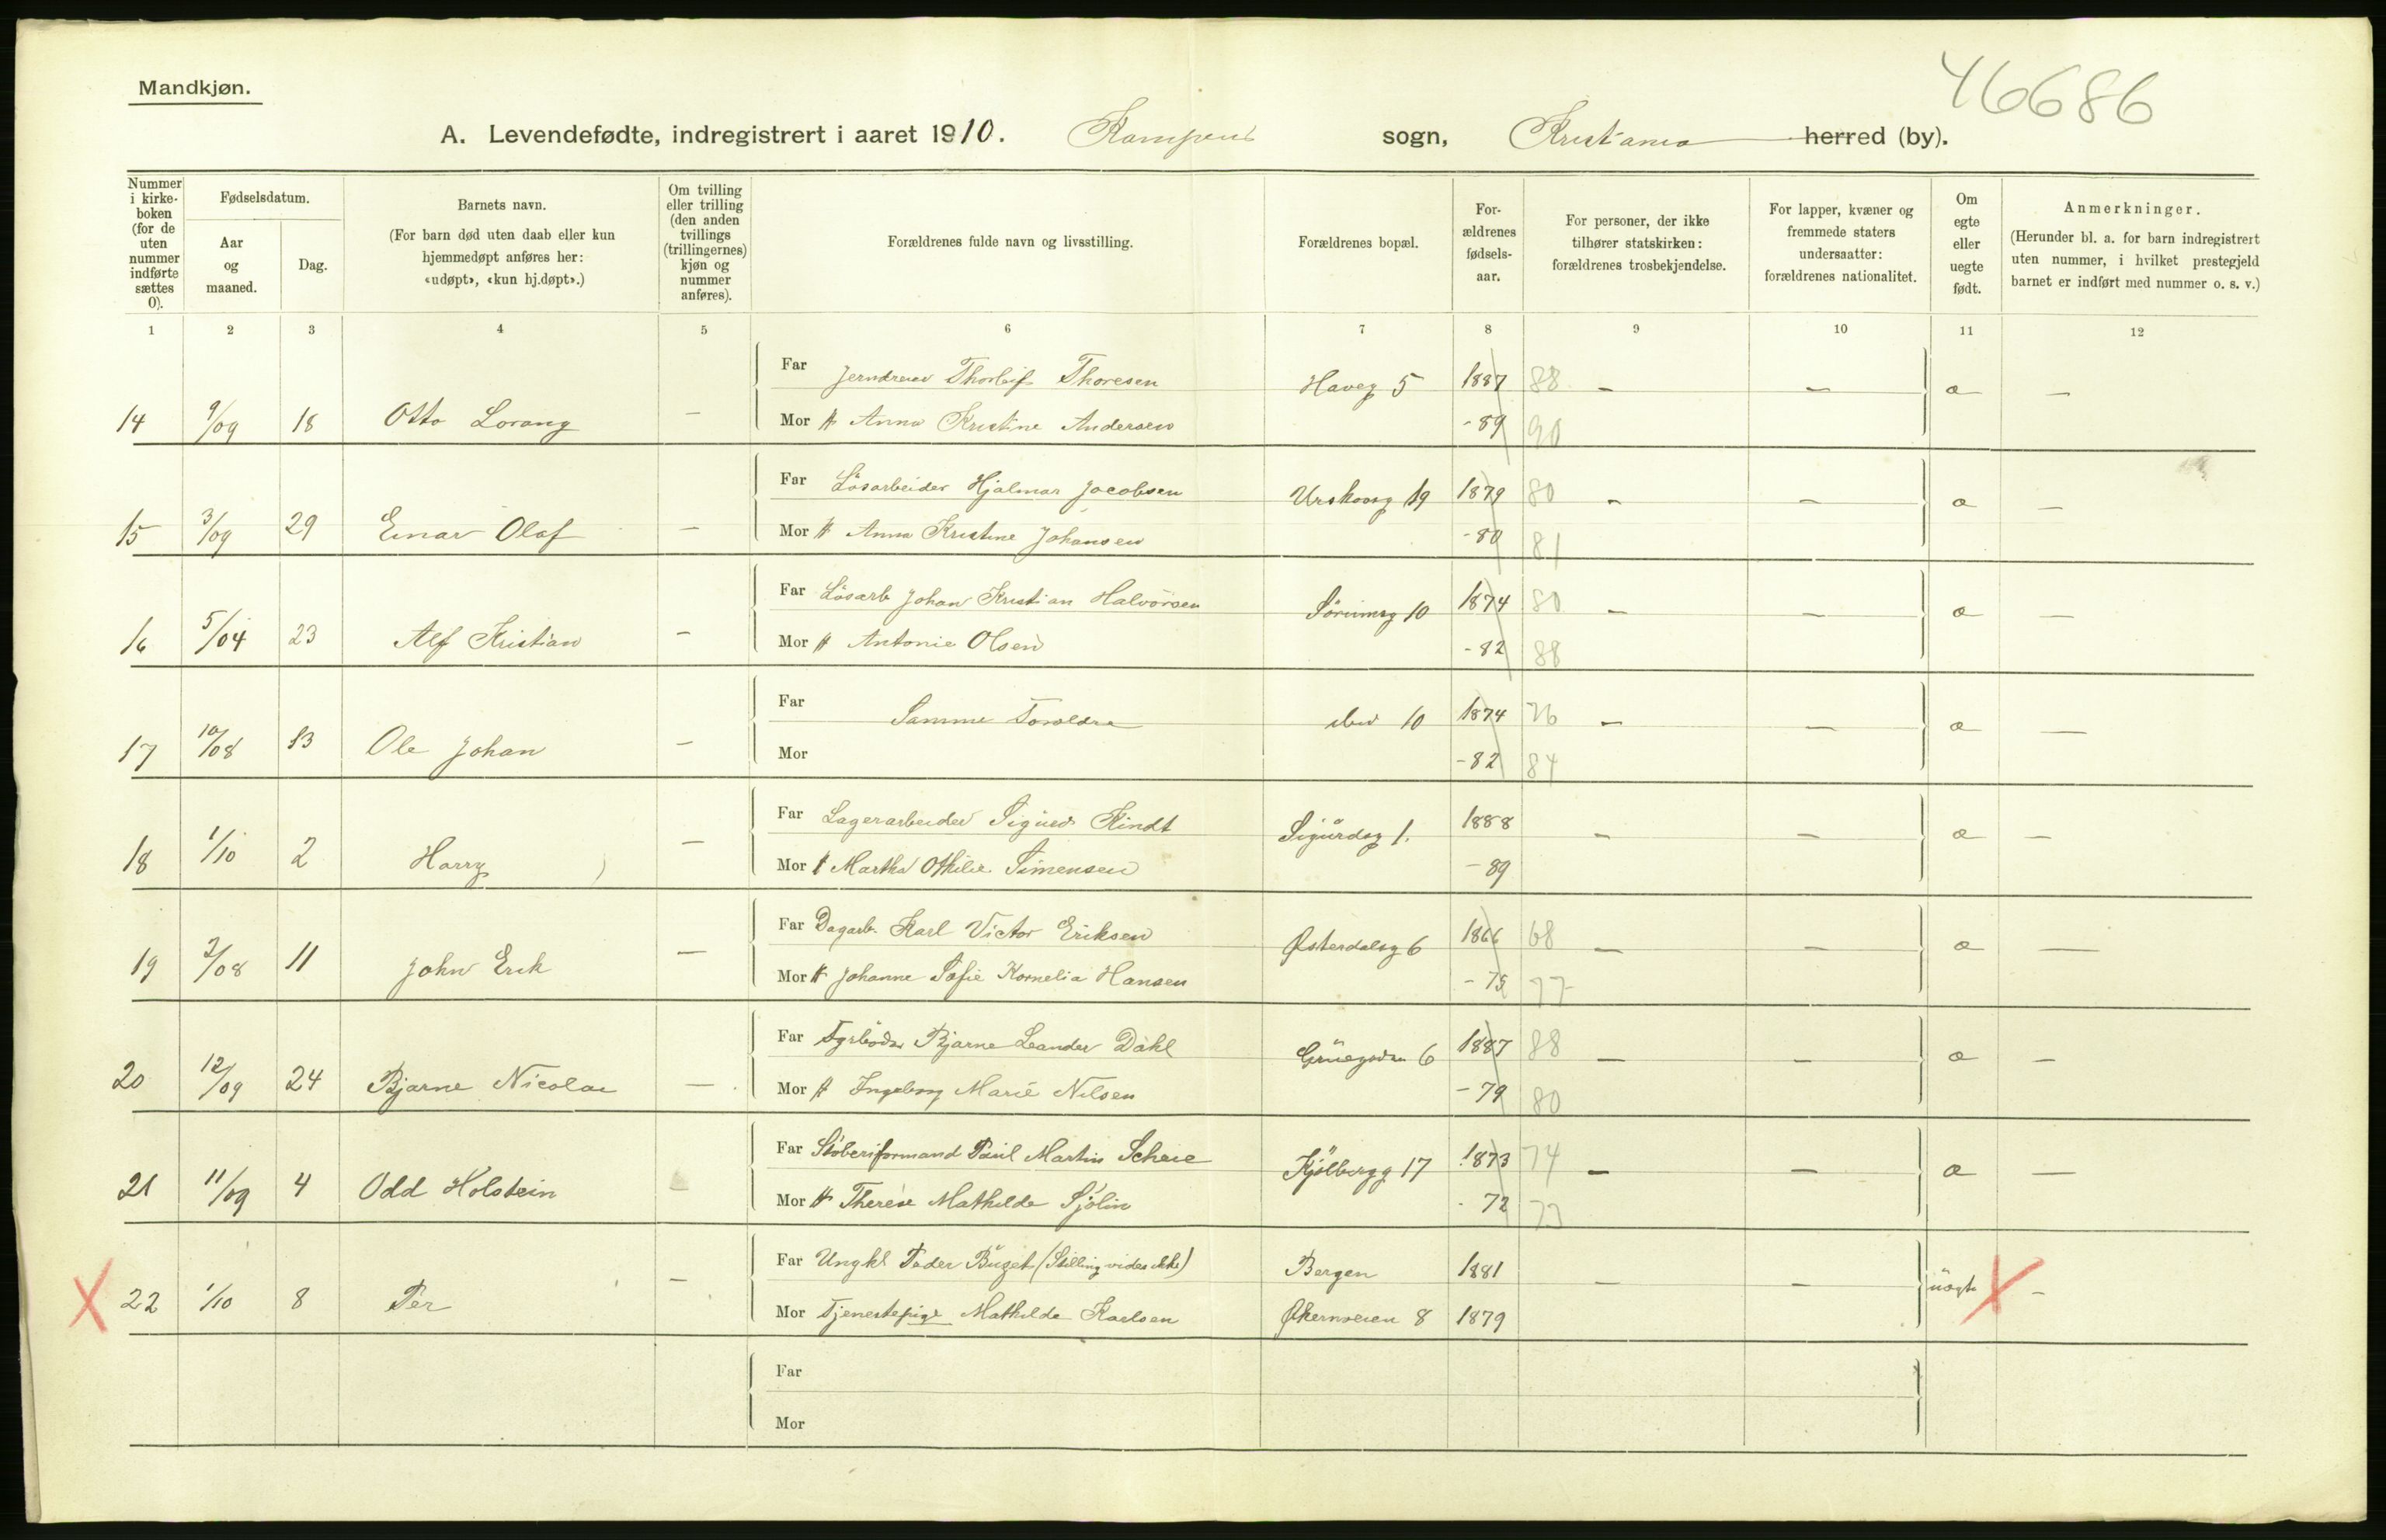 46686
Mandkjøn.
A. Levendefødte, indregistrert i aaret 1910. Kampens sogn, Kristiania herred (by).
Nummer i kirke-boken (for de uten nummer indførte sættes 0).
Fødselsdatum.
Aar og maaned.
Dag.
Barnets navn.
(For barn død uten daab eller kun hjemmedøpt anføres her: «udøpt», «kun hj.døpt».)
Om tvilling eller trilling (den anden tvillings (trillingernes) kjøn og nummer anføres).
Forældrenes fulde navn og livsstilling.
Forældrenes bopæl.
For-ældrenes fødsels-aar.
For personer, der ikke tilhører statskirken: forældrenes trosbekjendelse.
For lapper, kvæner og fremmede staters undersaatter: forældrenes nationalitet.
Om egte eller uegte født.
Anmerkninger.
(Herunder bl. a. for barn indregistrert uten nummer, i hvilket prestegjeld barnet er indført med nummer o. s. v.)
1 2 3 4 5 6 7 8 9 10 11 12
Far Jerndreier Thorleif Thoresen Haveg 5 1887 88 — — a —
14 9/09 18 Otto Lorang — Mor Anna Kristine Andersen - 89 90
Far Løsarbeider Hjalmar Jacobsen Urskovsg 19 1879 80 — — a —
15 3/09 29 Einar Olaf — Mor Anna Kristine Johansen - 80 81
Far Løsarb Johan Kristian Halvorsen Sørumsg 10 1874 80 — — a —
16 5/04 23 Alf Kristian — Mor Antonie Olsen - 82 88
Far Samme Foreldre 10 1874 76 — — a —
17 10/08 13 Ole Johan — Mor - 82 84
Far Lagerarbeider Sigurd Kindt Sigurdsg 1. 1888 — — a —
18 1/10 2 Harry — Mor Martha Othilie Simensen - 89
Far Dagarb. Karl Victor Eriksen Østerdalsg 6 1866 68 — — a —
19 2/08 11 John Erik — Mor Johanne Sofie Kornelia Hansen - 75 77
Far Fyrbøder Bjarne Leander Dahl 6 1887 88 — — a —
20 12/09 24 Bjarne Nicolai — Mor Ingeborg Marie Nilsen - 79 80
Far Støberiformand Paul Martin Scheie Kjølbergg 17 1873 74 — — a —
21 11/09 4 Odd Holstein — Mor Therese Mathilde Sjølin - 72 73
Far Ungkl Peder (Stilling vides ikke) Bergen 1881 — — uegte X —
X 22 1/10 8 Per — Mor Tjenestepige Mathilde Karlsen Økernveien 8 1879
Far
Mor